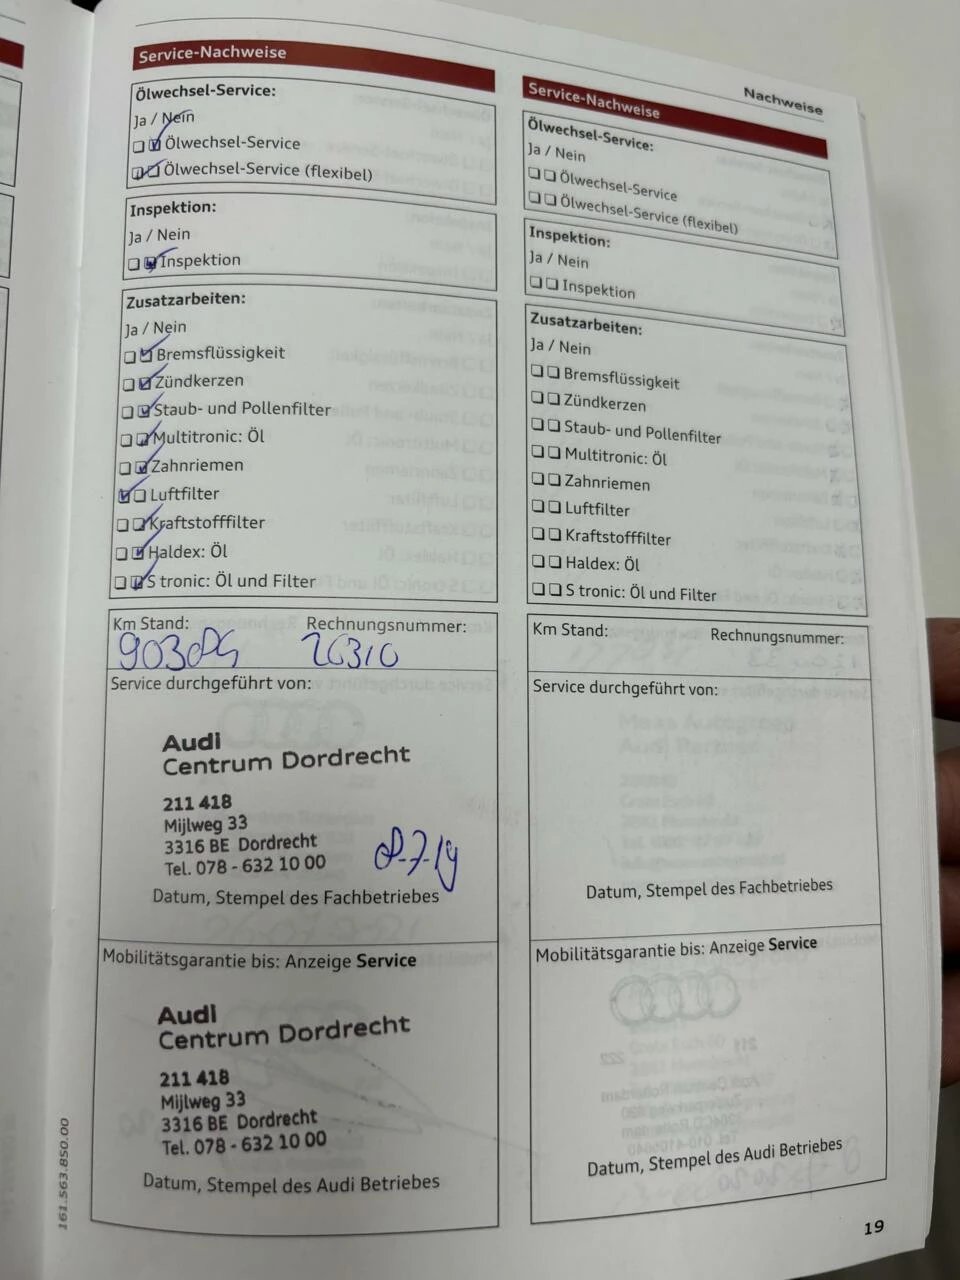 Service-Nachweise
Ölwechsel-Service:
Ja / Nein
Ölwechsel-Service
Ölwechsel-Service (flexibel)
Inspektion:
Ja / Nein
Inspektion
Zusatzarbeiten:
Ja / Nein
Bremsflüssigkeit
Zündkerzen
Staub- und Pollenfilter
Multitronic: Öl
Zahnriemen
Luftfilter
Kraftstofffilter
Haldex: Öl
S tronic: Öl und Filter
Km Stand: Rechnungsnummer:
26310
Service durchgeführt von:
Audi
Centrum Dordrecht
211 418
Mijlweg 33
3316 BE Dordrecht
Tel. 078 - 632 10 00
8-7-19
Datum, Stempel des Fachbetriebes
Mobilitätsgarantie bis: Anzeige Service
Audi
Centrum Dordrecht
211 418
Mijlweg 33
3316 BE Dordrecht
Tel. 078 - 632 10 00
Datum, Stempel des Audi Betriebes
161.563.850.00
Nachweise
Service-Nachweise
Ölwechsel-Service:
Ja / Nein
Ölwechsel-Service
Ölwechsel-Service (flexibel)
Inspektion:
Ja / Nein
Inspektion
Zusatzarbeiten:
Ja / Nein
Bremsflüssigkeit
Zündkerzen
Staub- und Pollenfilter
Multitronic: Öl
Zahnriemen
Luftfilter
Kraftstofffilter
Haldex: Öl
S tronic: Öl und Filter
Km Stand: Rechnungsnummer:
Service durchgeführt von:
Datum, Stempel des Fachbetriebes
Mobilitätsgarantie bis: Anzeige Service
Datum, Stempel des Audi Betriebes
19